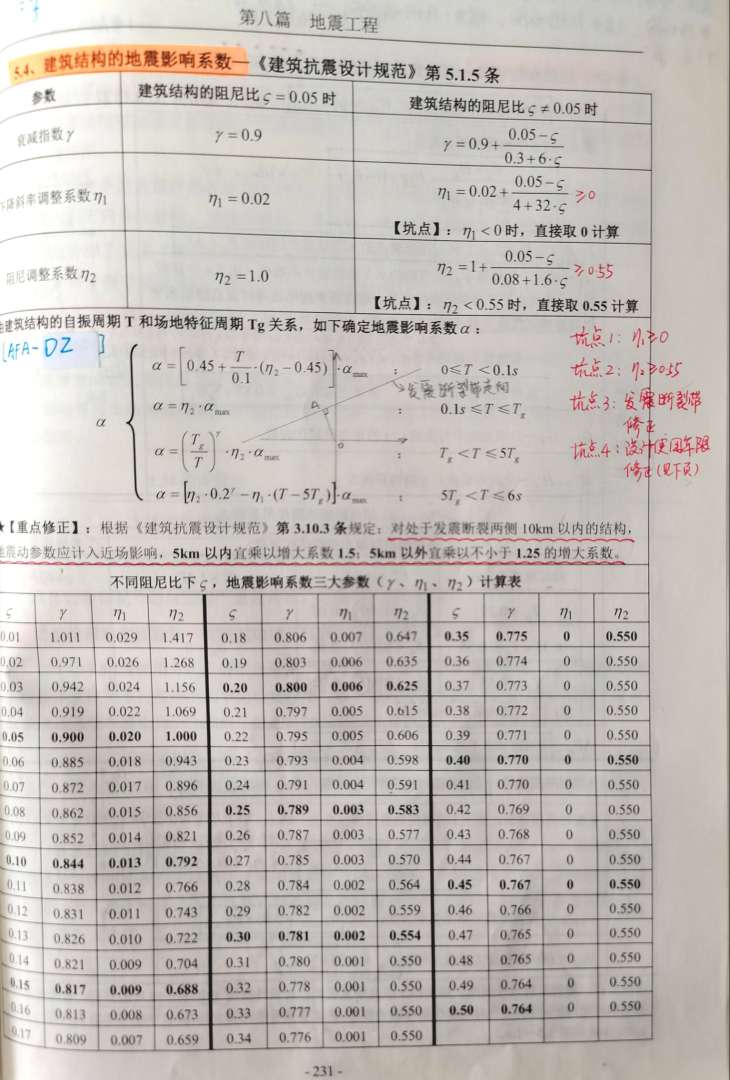 第八篇 地震工程
5.4、建筑结构的地震影响系数—《建筑抗震设计规范》第 5.1.5 条
参数 建筑结构的阻尼比 ς = 0.05 时 建筑结构的阻尼比 ς ≠ 0.05 时
衰减指数 γ γ = 0.9 γ = 0.9 + (0.05 − ς)/(0.3 + 6·ς)
下降斜率调整系数 η₁ η₁ = 0.02 η₁ = 0.02 + (0.05 − ς)/(4 + 32·ς) ≥0
【坑点】：η₁ < 0 时，直接取 0 计算
阻尼调整系数 η₂ η₂ = 1.0 η₂ = 1 + (0.05 − ς)/(0.08 + 1.6·ς) ≥0.55
【坑点】：η₂ < 0.55 时，直接取 0.55 计算
建筑结构的自振周期 T 和场地特征周期 Tg 关系，如下确定地震影响系数 α：
[AFA-DZ]
α
α = [0.45 + T/0.1·(η₂ − 0.45)]·αmax ： 0≤T < 0.1s
发震断裂带走向
α = η₂·αmax ： 0.1s ≤ T ≤ Tg
α = (Tg/T)^γ·η₂·αmax ： Tg < T ≤ 5Tg
α = [η₂·0.2^γ − η₁·(T − 5Tg)]·αmax ： 5Tg < T ≤ 6s
坑点1：η₁≥0
坑点2：η₂≥0.55
坑点3：发震断裂带
修正
坑点4：设计使用年限
修正(见下页)
★【重点修正】：根据《建筑抗震设计规范》第 3.10.3 条规定：对处于发震断裂两侧 10km 以内的结构，
地震动参数应计入近场影响，5km 以内宜乘以增大系数 1.5；5km 以外宜乘以不小于 1.25 的增大系数。
不同阻尼比下 ς，地震影响系数三大参数（γ、η₁、η₂）计算表
ς γ η₁ η₂ ς γ η₁ η₂ ς γ η₁ η₂
0.01 1.011 0.029 1.417 0.18 0.806 0.007 0.647 0.35 0.775 0 0.550
0.02 0.971 0.026 1.268 0.19 0.803 0.006 0.635 0.36 0.774 0 0.550
0.03 0.942 0.024 1.156 0.20 0.800 0.006 0.625 0.37 0.773 0 0.550
0.04 0.919 0.022 1.069 0.21 0.797 0.005 0.615 0.38 0.772 0 0.550
0.05 0.900 0.020 1.000 0.22 0.795 0.005 0.606 0.39 0.771 0 0.550
0.06 0.885 0.018 0.943 0.23 0.793 0.004 0.598 0.40 0.770 0 0.550
0.07 0.872 0.017 0.896 0.24 0.791 0.004 0.591 0.41 0.770 0 0.550
0.08 0.862 0.015 0.856 0.25 0.789 0.003 0.583 0.42 0.769 0 0.550
0.09 0.852 0.014 0.821 0.26 0.787 0.003 0.577 0.43 0.768 0 0.550
0.10 0.844 0.013 0.792 0.27 0.785 0.003 0.570 0.44 0.767 0 0.550
0.11 0.838 0.012 0.766 0.28 0.784 0.002 0.564 0.45 0.767 0 0.550
0.12 0.831 0.011 0.743 0.29 0.782 0.002 0.559 0.46 0.766 0 0.550
0.13 0.826 0.010 0.722 0.30 0.781 0.002 0.554 0.47 0.765 0 0.550
0.14 0.821 0.009 0.704 0.31 0.780 0.001 0.550 0.48 0.765 0 0.550
0.15 0.817 0.009 0.688 0.32 0.778 0.001 0.550 0.49 0.764 0 0.550
0.16 0.813 0.008 0.673 0.33 0.777 0.001 0.550 0.50 0.764 0 0.550
0.17 0.809 0.007 0.659 0.34 0.776 0.001 0.550
- 231 -